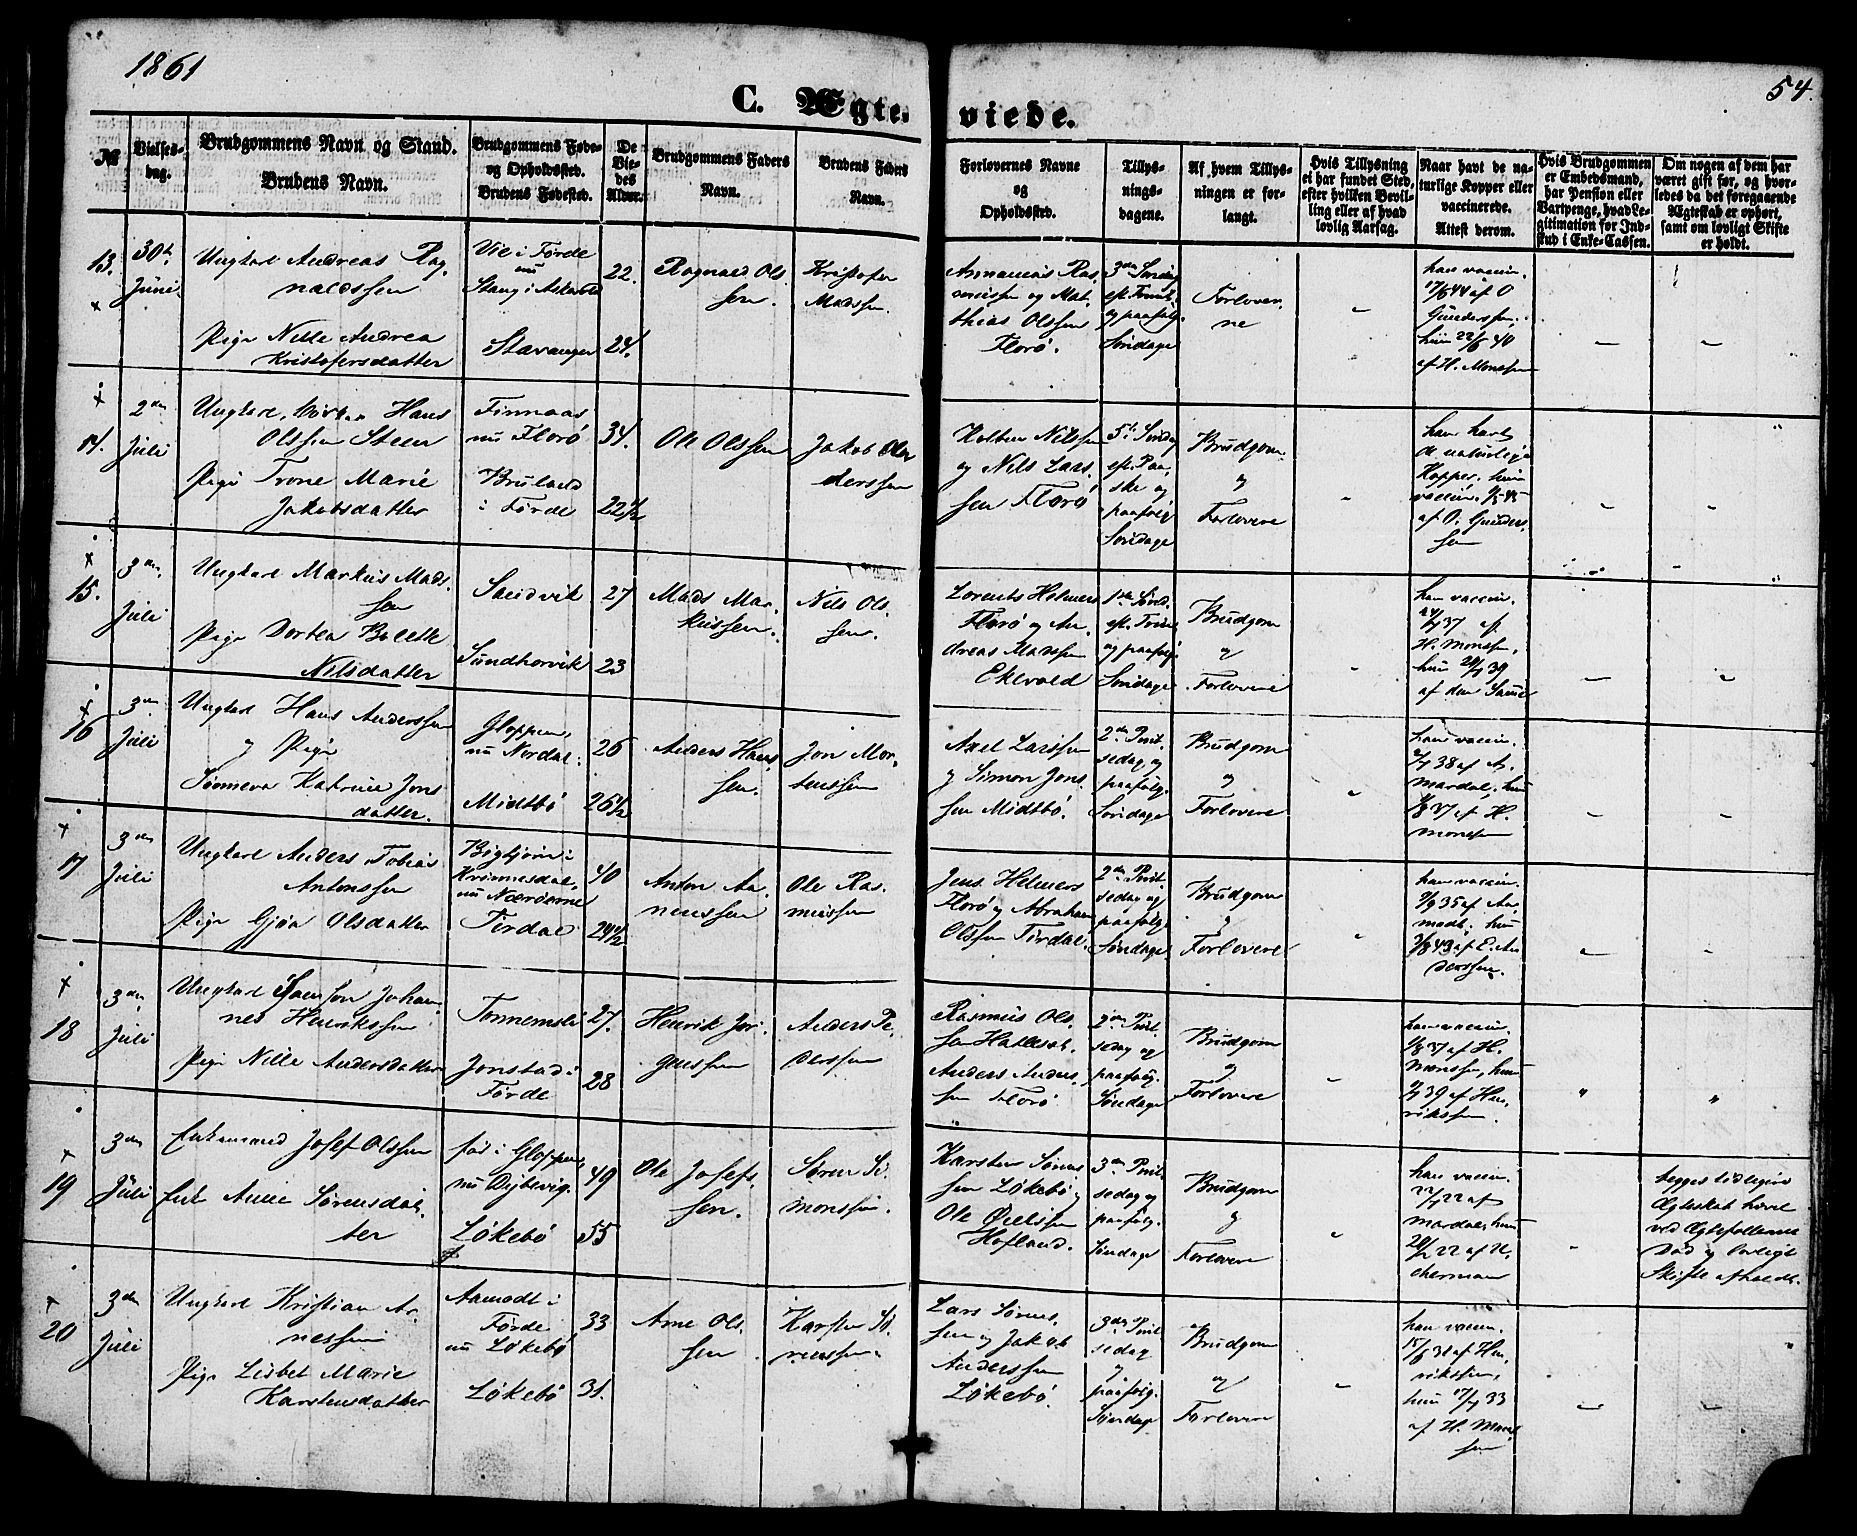 1861
54.
C. Ægte- viede.
№
Vielses-
dag.
Brudgommens Navn og Stand.
Brudens Navn.
Brudgommens Føde-
og Opholdssted.
Brudens Fødested.
De
Vie-
des
Alder.
Brudgommens Faders
Navn.
Brudens Faders
Navn.
Forlovernes Navne
og
Opholdssted.
Tillys-
nings-
dagene.
Af hvem Tillys-
ningen er for-
langt.
Hvis Tillysning
ei har fundet Sted,
efter hvilken Bevil-
ling eller af hvad
lovlig Aarsag.
Naar havt de na-
turlige Kopper eller
vaccinerede.
Attest derom.
Hvis Brudgommen
er Embedsmand,
har Pension eller
Vartpenge, hvad Le-
gitimation for Ind-
skud i Enke-Cassen.
Om nogen af dem har
været gift før, og hvor-
ledes da det foregaaende
Ægteskab er ophørt,
samt om lovligt Skifte
er holdt.
13.
30te
Juni
Ungkarl Andreas Rag-
naldssen
Pige Nille Andrea
Kristofersdatter
Vie i Førde
nu
Stang i Askevold
Stavanger
22.
24.
Ragnald Ols
sen.
Kristofer
Madssen.
Annanias Ras
mussen og Mat
thias Olssen
Florø.
3die Søndag
og paafølg.
Søndage
Forlover
ne
han vaccin.
17/6 44 af O
Gunderssen.
hun 22/6 40
af H. Monssen
14.
2den
Juli
Ungkarl, Hans
Olssen Steen
Pige Trone Marie
Jakobsdatter
Finnaas
nu Florø
Bruland
i Førde
34.
22 1/2
Ole Olssen
Jakob An
derssen
Nilssen
og Nils Lars
sen Florø
5te Søndag
eft. Paa
ske og
paafølg
Søndage
Brudgom
og
Forlovere
han havt
de naturlige
Kopper, hun
vaccin.
af O. Gunders
sen
15.
3die
Juli
Ungkarl Markus Mads
sen
Pige Dortea Bolette
Nilsdatter
Sandvik
Sundhorvik
27
23
Mads Mar
kussen.
Nils Ols
sen.
Lorents Helmers
Florø og An
dreas Madssen
Ekevold
1ste Sønd.
eft. Trini
og paafølg
Søndage
Brudgom
og
Forlovere
han vaccin.
37 af
H. Monssen,
hun 39
af den Samme
16
3die
Juli
Ungkarl Hans Anderssen
og Pige
Sønneva Katrine Jons
datter.
Gloppen,
nu Nordal.
Midtbø
26
26 1/2
Anders Hans
sen.
Jon Mor
tenssen
Axel Larssen
og Simon Jons
sen Midtbø.
2den Pint
sedag og
paafølg.
Søndage
Brudgom
og
Forlovere
han vaccin.
38 af A.
Mardal, hun
37 af H.
Monssen
17
3die
Juli
Ungkarl Anders Tobias
Antonssen
Pige Gjøa Olsdatter
nu Nærøerne
Tirdal
40
24 1/2
Anton Aa
nenssen
Ole Ras
mussen
Jens Helmers
Florø og Abraham
Olssen Tirdal.
2den Pint
sedag og
paafølg
Søndage
Brudgom
og
Forlovere
han vaccin.
35 af Aa
modt, hun
43 af E. An
derssen.
18
3die
Juli
Ungkarl Johan
nes Henrikssen
Pige Nille Andersdatter
Tonnemsli
Jonstad i
Førde
27.
28
Henrik Jør
genssen
Anders Pe
derssen
Rasmus Ols
sen
Anders Anders
sen Florø
2den Pint
sedag og
paafølg.
Søndage
Brudgom
og
Forlovere
han vaccin.
37 af H.
Monssen, hun
39 af Hen
rikssen.
19
3die
Juli
Enkemand Josef Olssen
Enke Anne Sørensdat
ter
fød i Gloppen,
nu Dybevig
Løkebø
49
55
Ole Josefs
sen.
Søren Si
monssen.
Karsten Sørens
sen Løkebø og
Ole
Hofland.
3die Pint
sedag og
paafølg.
Søndage
Brudgom
og
Forlovere
han vaccin.
22 af
Mardal, hun
22 af
Begges tidligere
Ægteskab hævet
ved Ægtefællernes
Død og lovligt
Skifte afholdt.
20
3die
Juli
Ungkarl Kristian Ar
nessen
Pige Lisbet Marie
Karstensdatter
Aamodt i
Førde
nu Løkebø
Løkebø
33
31.
Arne Ols
sen
Karsten Sø
renssen.
Lars Sørens
sen og Jakob
Anderssen
Løkebø.
3die Pint
sedag
og
paafølg.
Søndage
Brudgom
og
Forlovere
han vaccin.
af Hen
rikssen,
hun 33
af H. Mons
sen